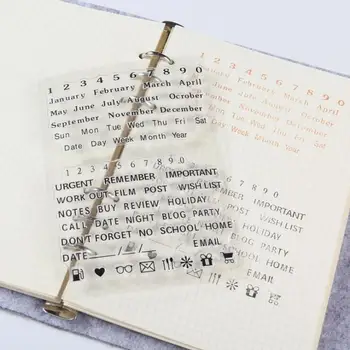 1 2 3 4 5 6 7 8 9 0
January February March April
May June July August October
September November December
Sun Mon Tue Wed Thu Fri Sat
Date Day Week Month Year
1 2 3 4 5 6 7 8 9 0
URGENT REMEMBER IMPORTANT
WORK OUT FILM POST WISH LIST
NOTES BUY REVIEW HOLIDAY
CALL DATE NIGHT BLOG PARTY
DON'T FORGET NO SCHOOL HOME
DATE __/__/__ EMAIL
1 2 3 4 5 6 7 8 9 0
February March April
July August October
November December
Tue Wed Thu Fri Sat
Day Week Month Year
7 8 9 0
MEMBER IMPORTANT
POST WISH LIST
REVIEW HOLIDAY
BLOG PARTY
SCHOOL HOME
EMAIL